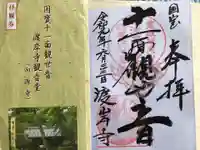 拝観券
国宝十一面観世音
渡岸寺観音堂
（向源寺）
国宝
奉拝
十一面観音
渡岸寺